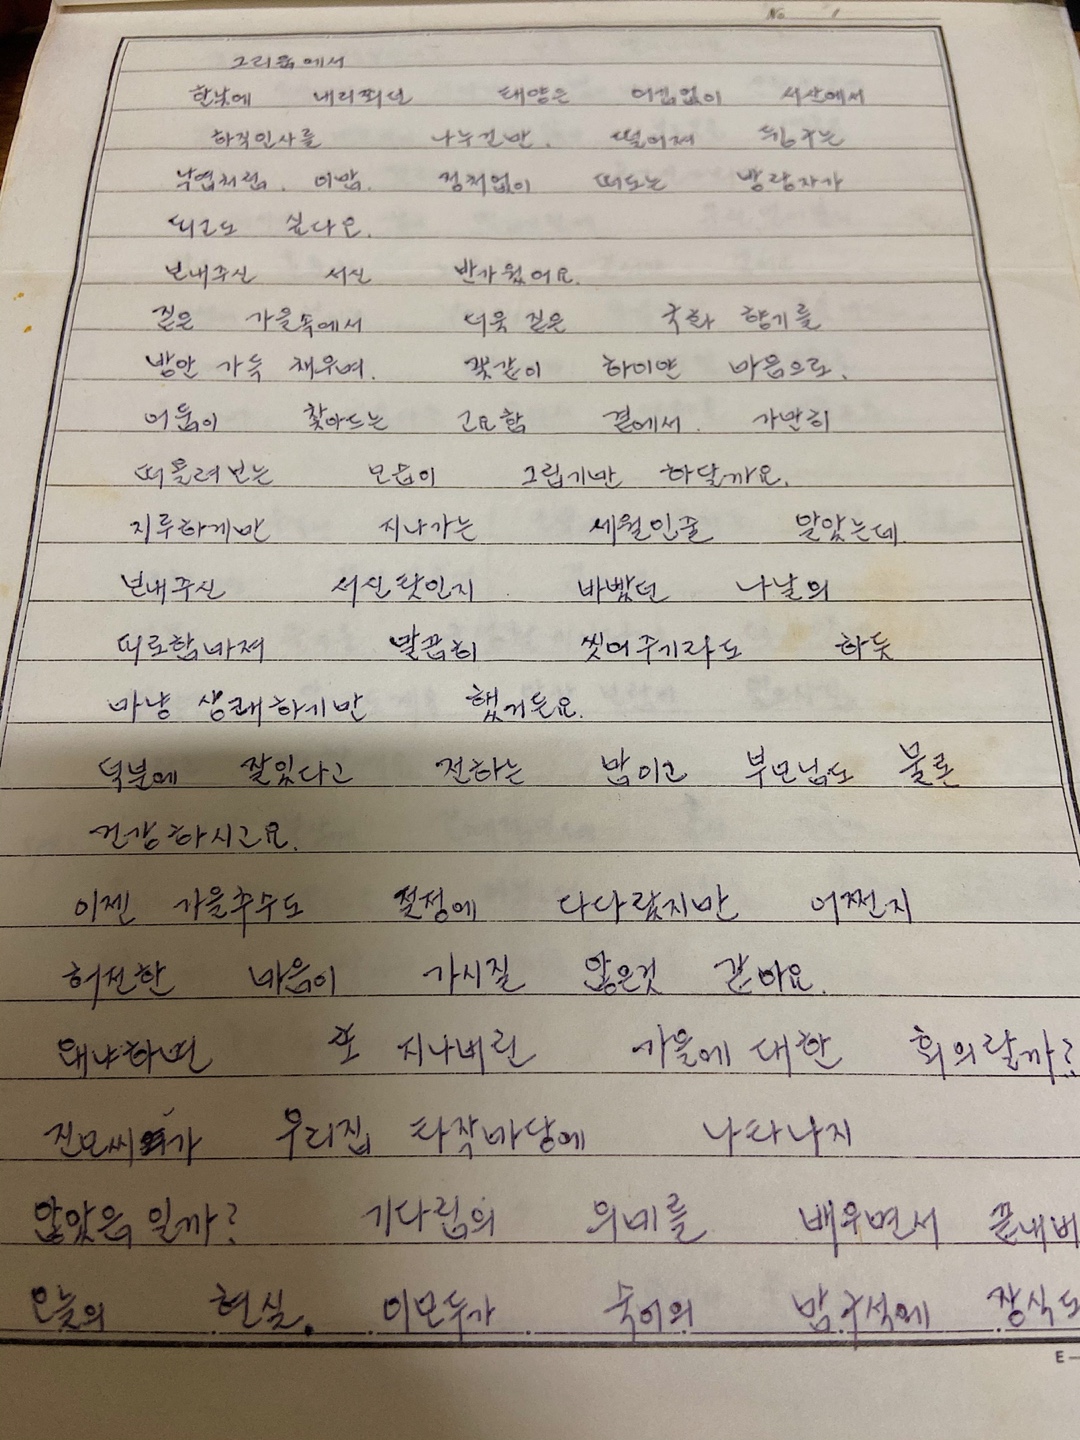 No 1
그리움에서
한낮에 내리쬐던 태양은 어김없이 서산에서
하직인사를 나누건만, 떨어져 뒹구는
낙엽처럼, 이밤, 정처없이 떠도는 방랑자가
되고도 싶다오.
보내주신 서신 반가웠어요.
짙은 가을속에서 더욱 짙은 국화 향기를
방안 가득 채우며, 꽃같이 하이얀 마음으로,
어둠이 찾아드는 고요함 곁에서, 가만히
떠올려보는 모습이 그립기만 하달까요.
지루하게만 지나가는 세월인줄 알았는데
보내주신 서신탓인지 바빴던 나날의
피로함마져 말끔히 씻어주기라도 하듯
마냥 상쾌하기만 했거든요.
덕분에 잘있다고 전하는 밤이고 부모님도 물론
건강하시고요.
이젠 가을추수도 절정에 다다랐지만 어쩐지
허전한 마음이 가시질 않은것 같아요.
왜냐하면 또 지나버린 가을에 대한 회의랄까?
진모씨가 우리집 타작마당에 나타나지
않았음 일까? 기다림의 의미를 배우면서 끝내버
오늘의 현실. 이모두가 숙이의 밤구석에 장식도
E-